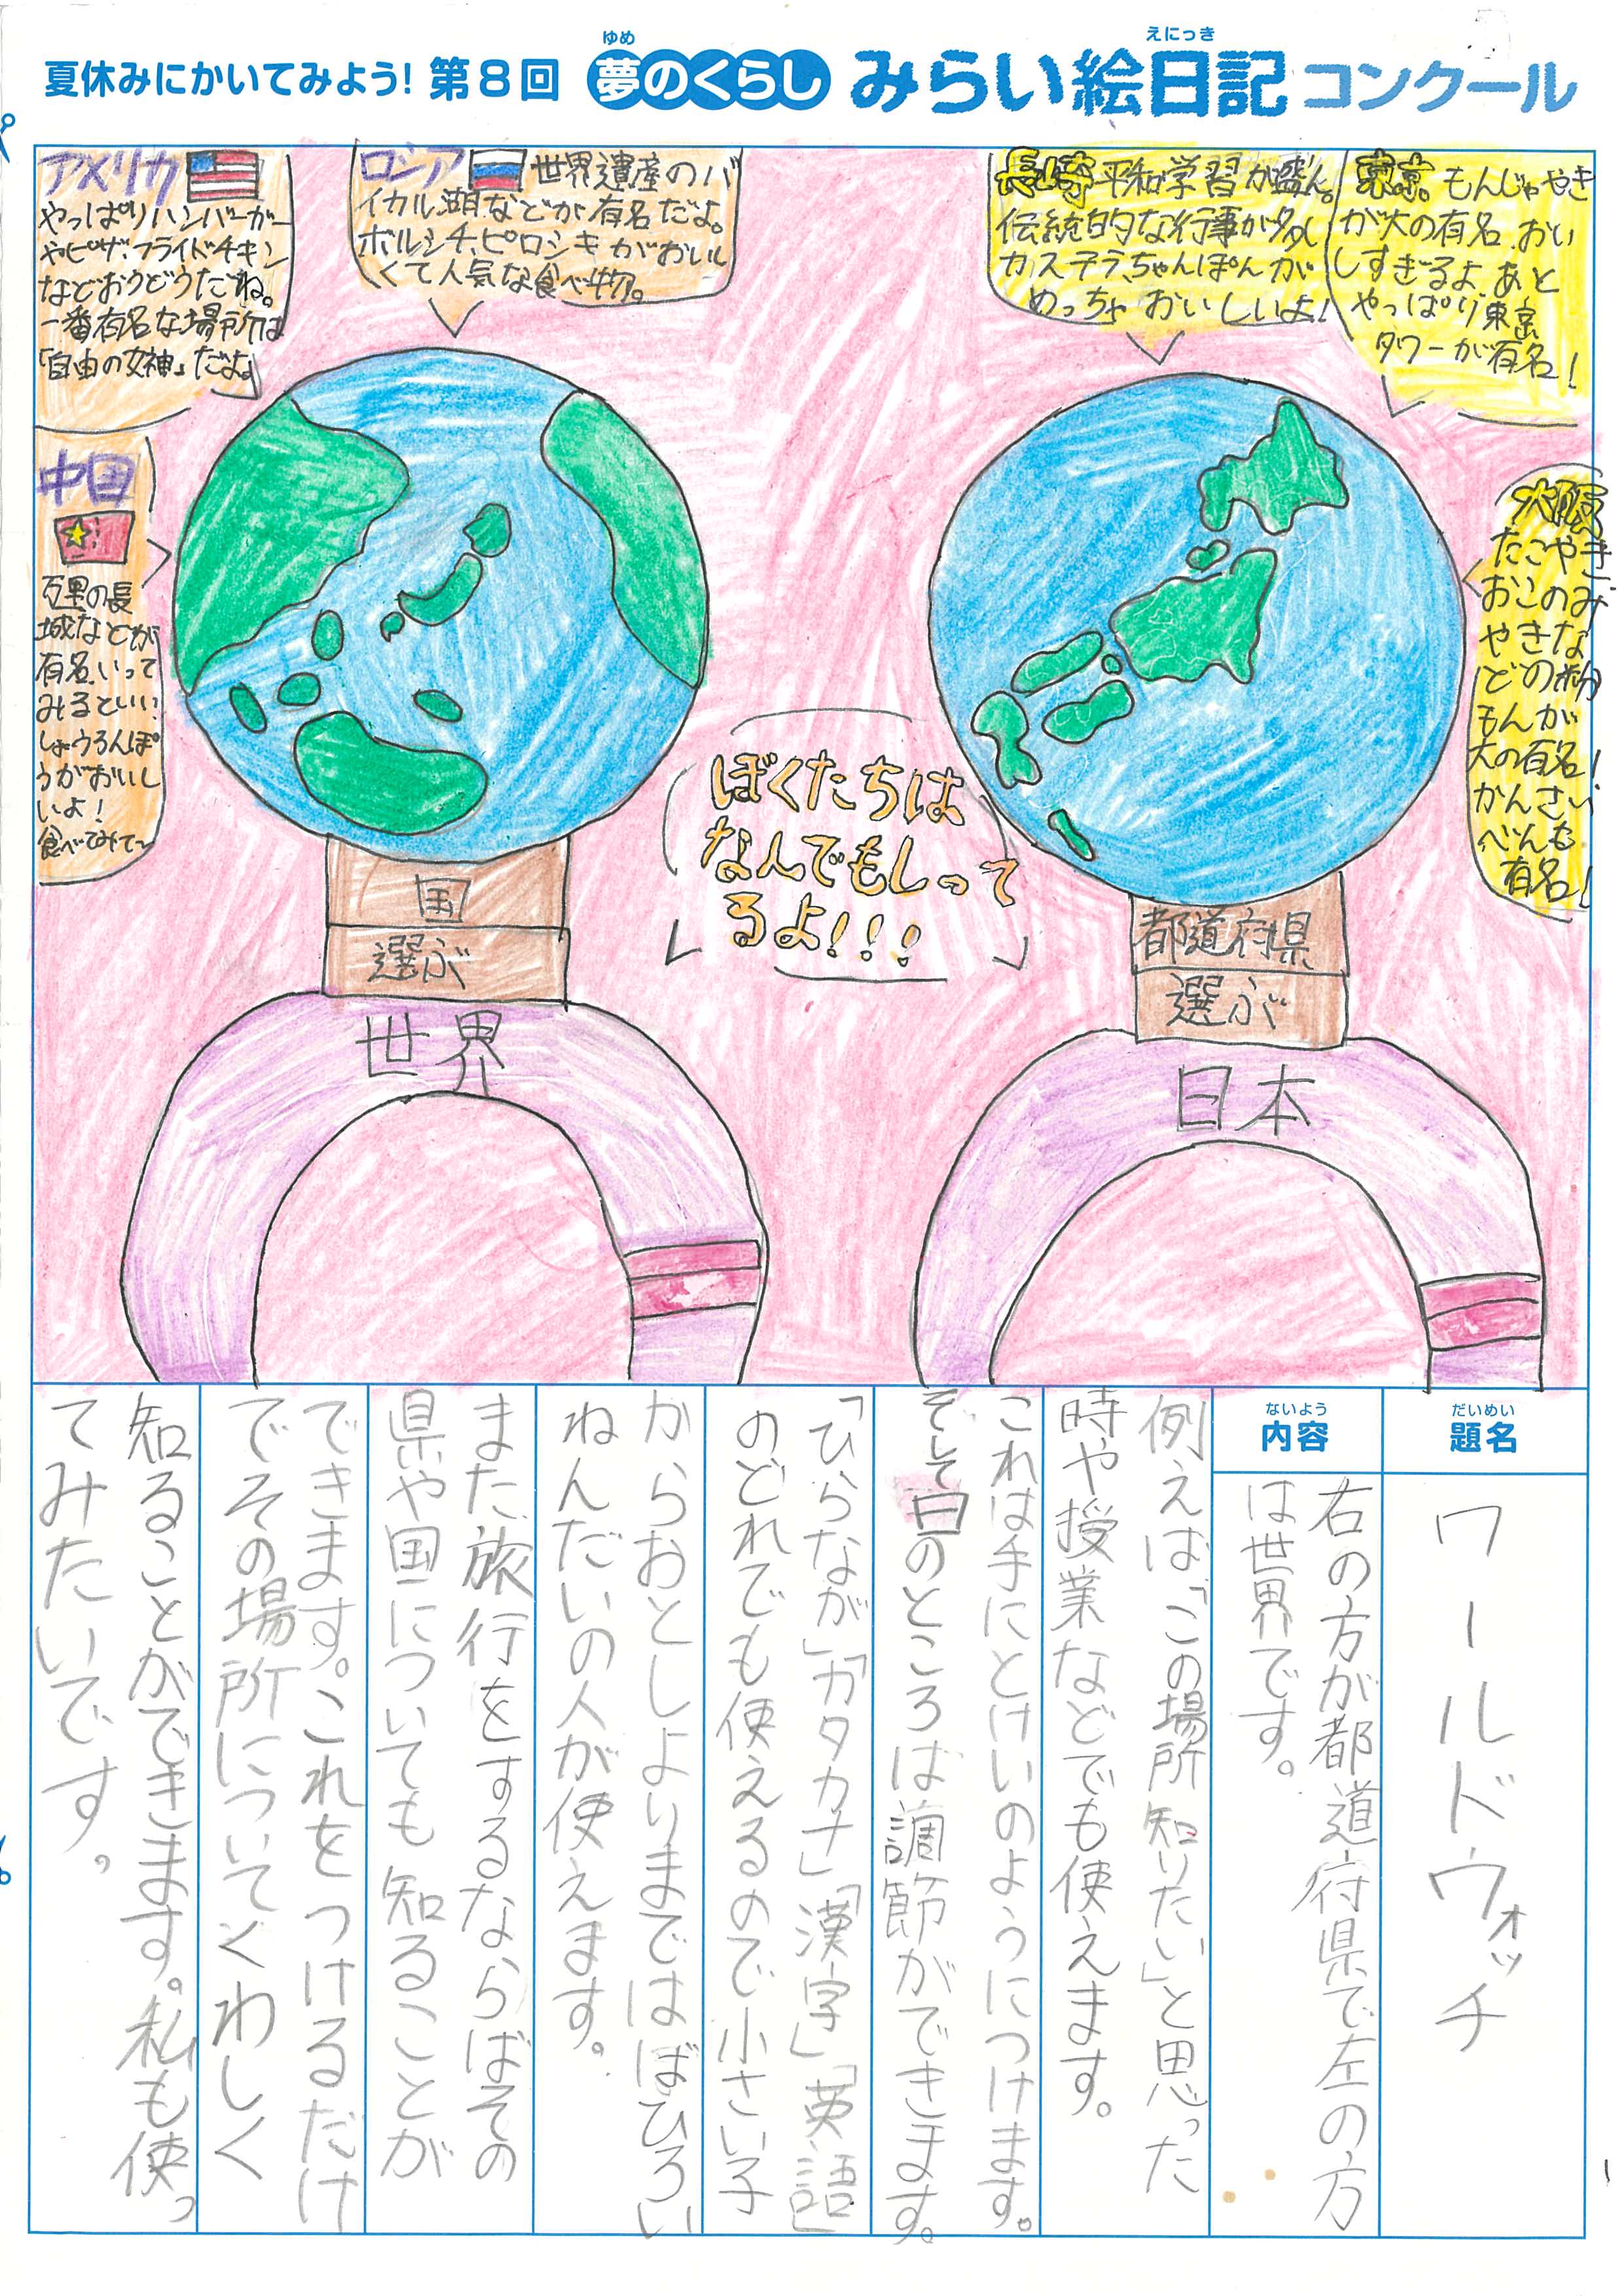 夏休みにかいてみよう! 第8回 夢のくらし みらい絵日記 コンクール
ゆめ
えにっき
アメリカ
やっぱりハンバーガー
やピザ、フライドチキン
などおうどうだね。
一番有名な場所は
「自由の女神」だよ。
ロシア 世界遺産のバ
イカル湖などが有名だよ。
ボルシチ、ピロシキがおいし
くて人気な食べ物。
長崎 平和学習が盛ん。
伝統的な行事が多い
カステラ、ちゃんぽんが
めっちゃおいしいよ!
東京 もんじゃやき
が大の有名。おい
しすぎるよ。あと
やっぱり東京
タワーが有名!
中国
の長
城などが
有名。いって
みるといい。
しょうろんぽ
うがおいし
いよ!
食べてみて~
大阪
たこやき
おこのみ
やきな
どの粉
もんが
大の有名!
かんさい
べんも
有名!
ぼくたちは
なんでもしって
るよ!!!
国
選ぶ
世界
都道府県
選ぶ
日本
だいめい
題名
ワールドウォッチ
ないよう
内容
右の方が都道府県で左の方
は世界です。
例えば「この場所知りたい」と思った
時や授業などでも使えます。
これは手にとけいのようにつけます。
そして白のところは調節ができます。
「ひらなが」「カタカナ」「漢字」「英語」
のどれでも使えるので小さい子
からおとしよりまではばひろい
ねんだいの人が使えます。
また旅行をするならばその
県や国についても知ることが
できます。これをつけるだけ
でその場所についてくわしく
知ることができます。私も使っ
てみたいです。